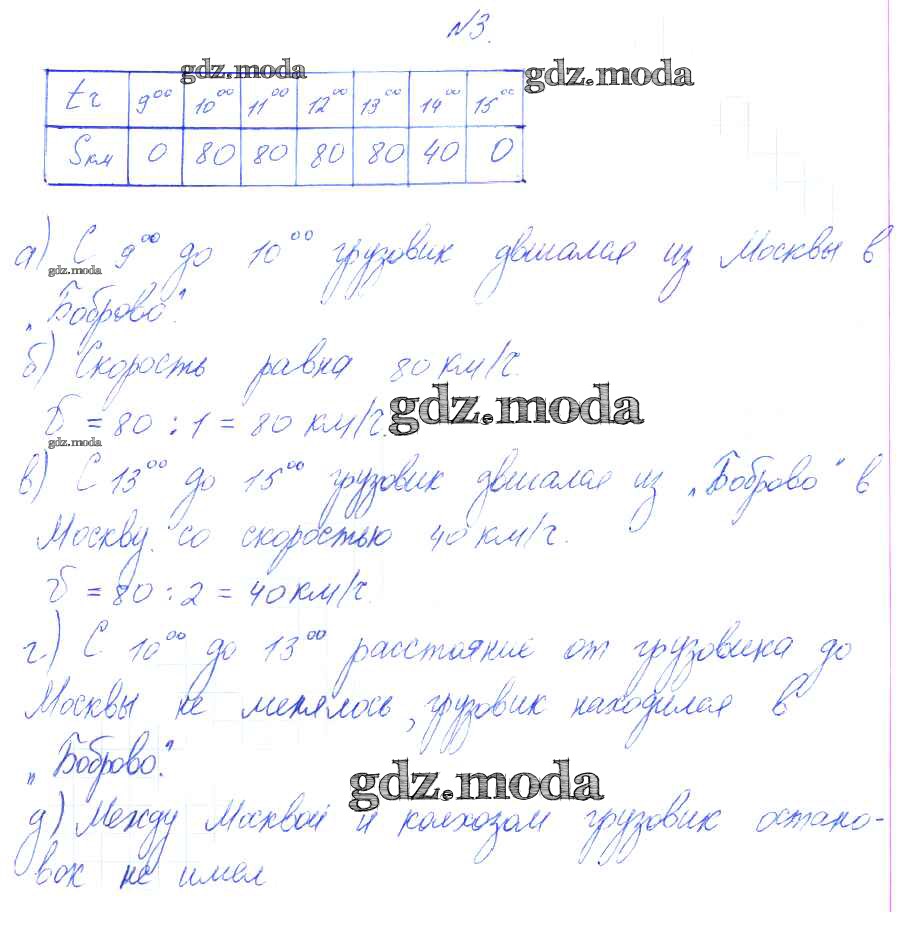 №3.
gdz.moda
gdz.moda
t ч 9⁰⁰ 10⁰⁰ 11⁰⁰ 12⁰⁰ 13⁰⁰ 14⁰⁰ 15⁰⁰
S км 0 80 80 80 80 40 0
а) С 9⁰⁰ до 10⁰⁰ грузовик двигался из Москвы в
gdz.moda
„Боброво".
б) Скорость равна 80 км/ч.
gdz.moda
υ = 80 : 1 = 80 км/ч.
gdz.moda
в) С 13⁰⁰ до 15⁰⁰ грузовик двигался из „Боброво" в
Москву со скоростью 40 км/ч.
υ = 80 : 2 = 40 км/ч.
г) С 10⁰⁰ до 13⁰⁰ расстояние от грузовика до
Москвы не менялось, грузовик находился в
„Боброво".
gdz.moda
д) Между Москвой и колхозом грузовик остано-
вок не имел